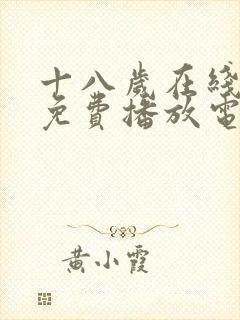 十八歲在綫
免費播放電
黄小霞